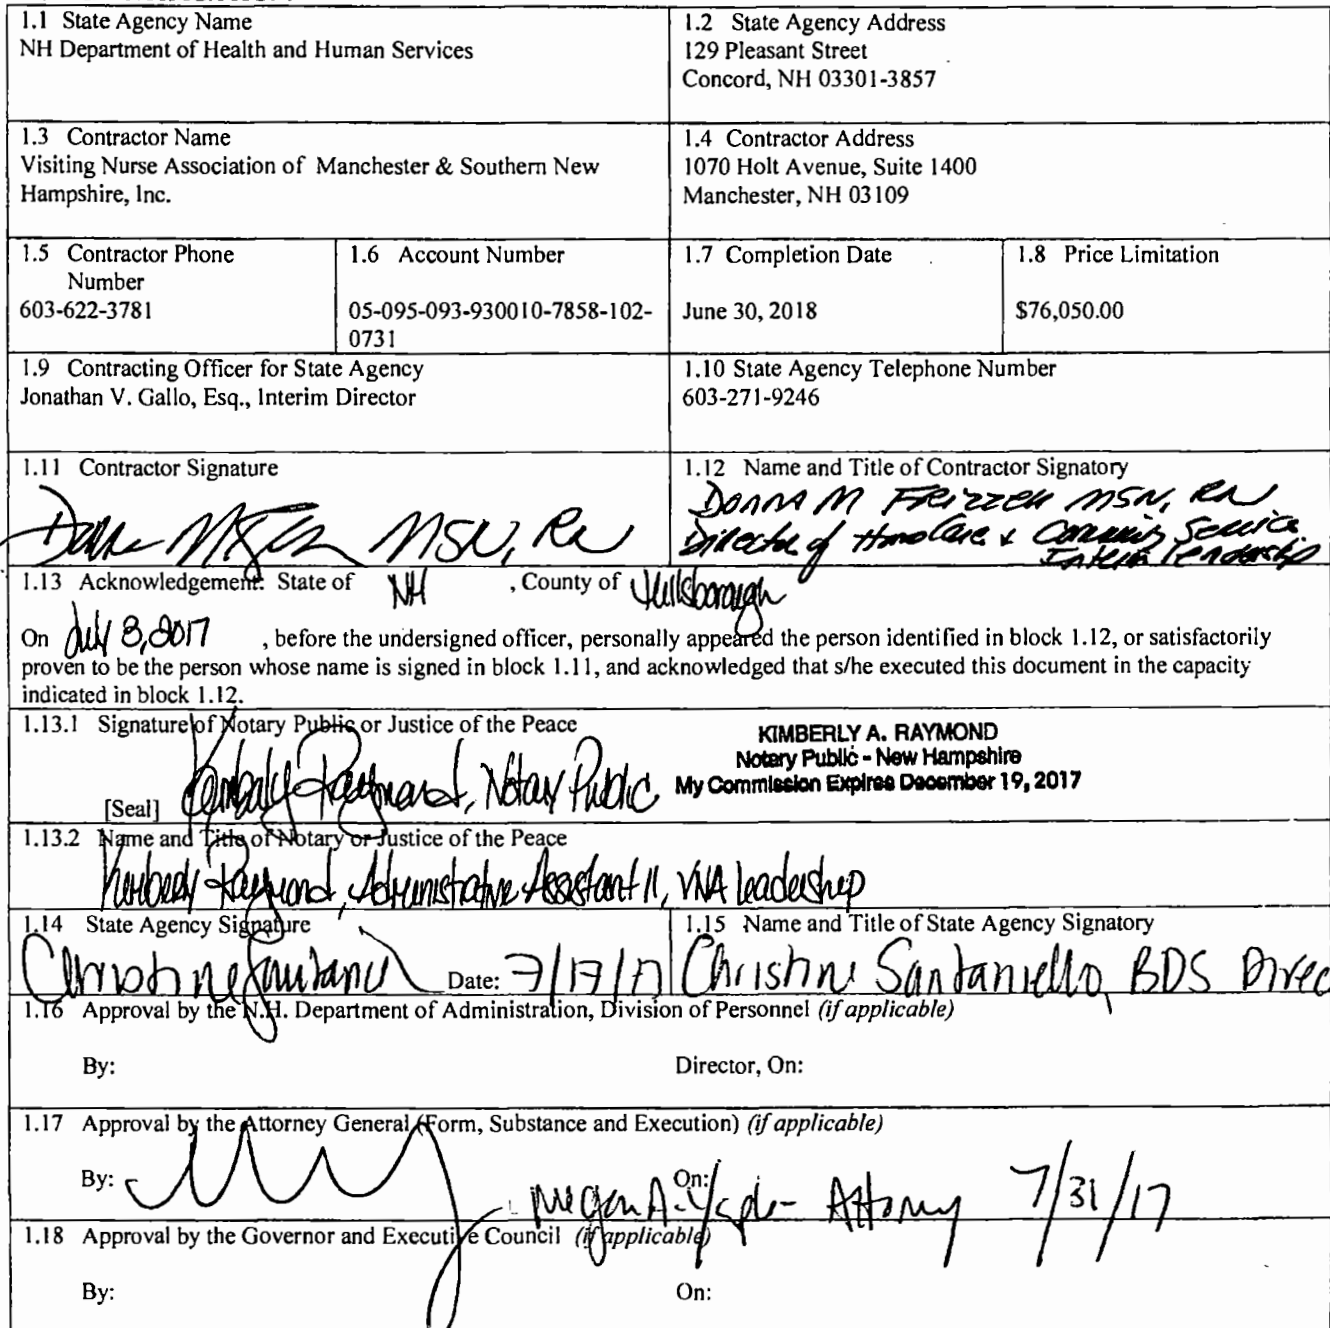 1.1 State Agency Name
NH Department of Health and Human Services
1.2 State Agency Address
129 Pleasant Street
Concord, NH 03301-3857
1.3 Contractor Name
Visiting Nurse Association of Manchester & Southern New
Hampshire, Inc.
1.4 Contractor Address
1070 Holt Avenue, Suite 1400
Manchester, NH 03109
1.5 Contractor Phone
Number
603-622-3781
1.6 Account Number
05-095-093-930010-7858-102-
0731
1.7 Completion Date
June 30, 2018
1.8 Price Limitation
$76,050.00
1.9 Contracting Officer for State Agency
Jonathan V. Gallo, Esq., Interim Director
1.10 State Agency Telephone Number
603-271-9246
1.11 Contractor Signature
MSN, RN
1.12 Name and Title of Contractor Signatory
Donna M Frizzell MSN, RN
Director of Home Care & Service
Interim Leadership
1.13 Acknowledgement: State of NH , County of Hillsborough
On July 3, 2017 , before the undersigned officer, personally appeared the person identified in block 1.12, or satisfactorily
proven to be the person whose name is signed in block 1.11, and acknowledged that s/he executed this document in the capacity
indicated in block 1.12.
1.13.1 Signature of Notary Public or Justice of the Peace
KIMBERLY A. RAYMOND
Notary Public - New Hampshire
My Commission Expires December 19, 2017
[Seal] Kimberly Raymond, Notary Public
1.13.2 Name and Title of Notary or Justice of the Peace
Kimberly Raymond, Administrative Assistant II, VNA leadership
1.14 State Agency Signature
Christine Santaniello Date: 7/17/17
1.15 Name and Title of State Agency Signatory
Christine Santaniello, BDS Direc
1.16 Approval by the N.H. Department of Administration, Division of Personnel (if applicable)
By: Director, On:
1.17 Approval by the Attorney General (Form, Substance and Execution) (if applicable)
By: On: Megan A. Attorney 7/31/17
1.18 Approval by the Governor and Executive Council (if applicable)
By: On: